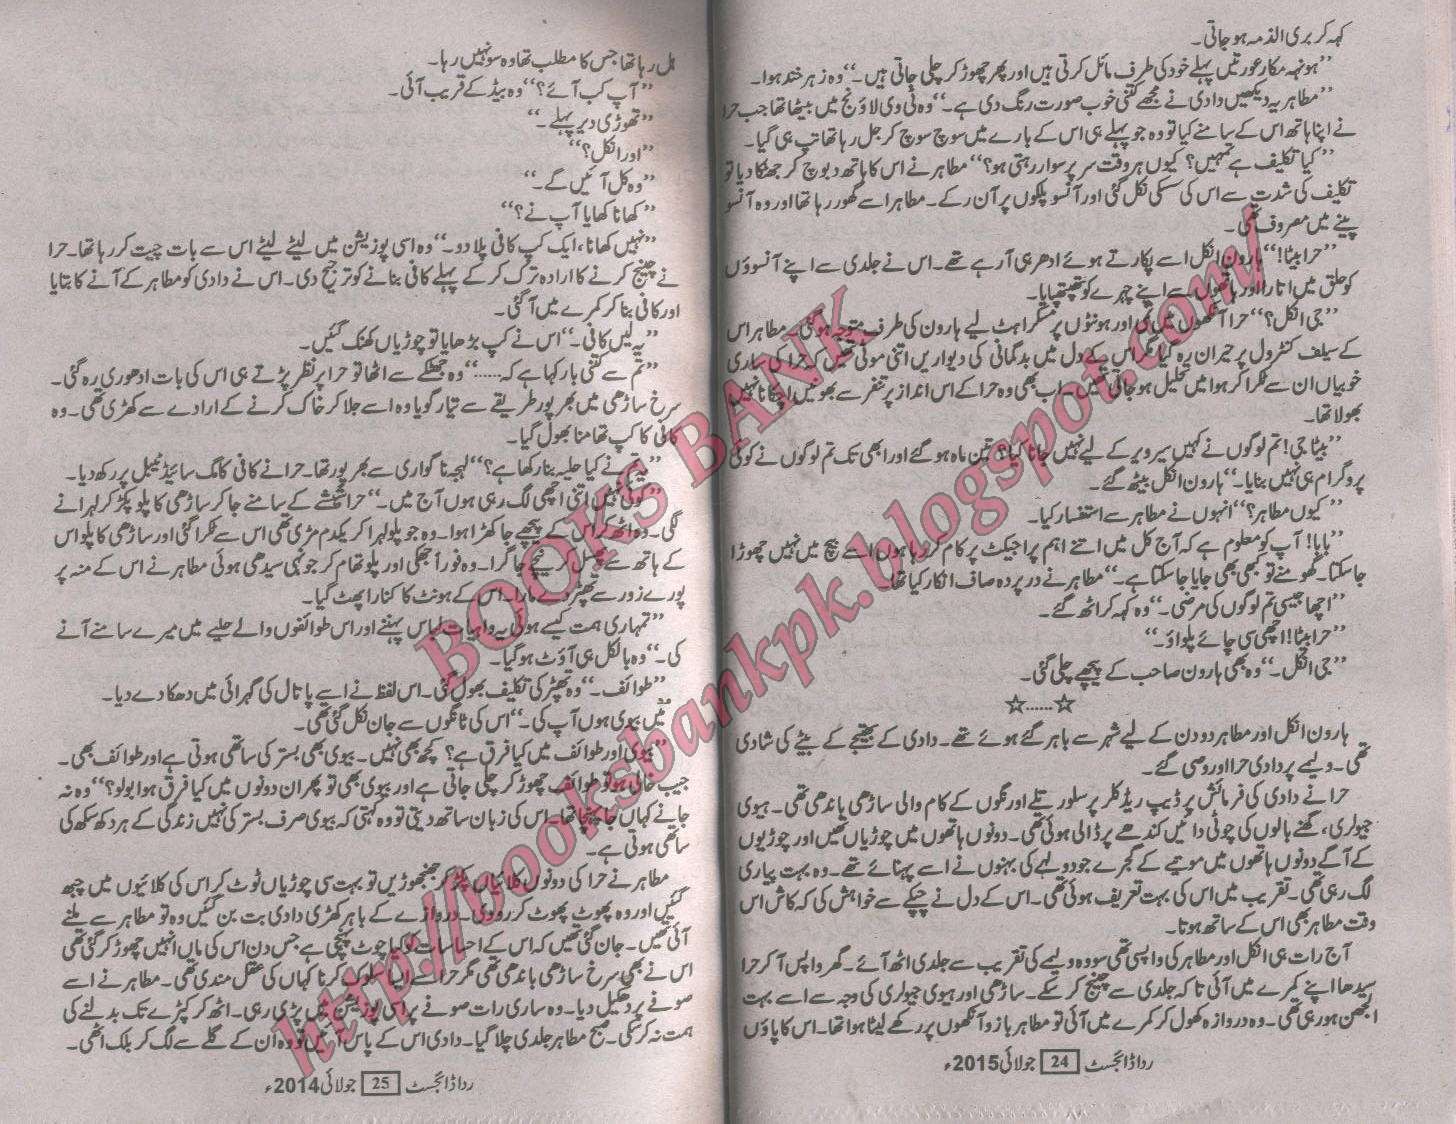 کہہ کر بری الذمہ ہو جاتی۔
”ہونہہ مکار عورتیں پہلے خود کی طرف مائل کرتی ہیں اور پھر چھوڑ کر چلی جاتی ہیں۔“ وہ زہر خند ہوا۔
”مطاہر یہ دیکھیں دادی نے مجھے کتنی خوب صورت رنگ دی ہے۔“ وہ ٹی وی لاؤنج میں بیٹھا تھا جب حرا
نے اپنا ہاتھ اس کے سامنے کیا تو وہ جو پہلے ہی اس کے بارے میں سوچ سوچ کر جل رہا تھا تپ ہی گیا۔
”کیا تکلیف ہے تمہیں؟ کیوں ہر وقت سر پر سوار رہتی ہو؟“ مطاہر نے اس کا ہاتھ دبوچ کر جھٹکا دیا تو
تکلیف کی شدت سے اس کی سسکی نکل گئی اور آنسو پلکوں پر آن رکے۔ مطاہر اسے گھور رہا تھا اور وہ آنسو
پینے میں مصروف تھی۔
”حرا بیٹا!“ ہارون انکل اسے پکارتے ہوئے ادھر ہی آ رہے تھے۔ اس نے جلدی سے اپنے آنسوؤں
کو حلق میں اتارا اور ہاتھوں سے اپنے چہرے کو تھپتھپایا۔
”جی انکل؟“ حرا آنکھوں میں نمی اور ہونٹوں پر مسکراہٹ لیے ہارون کی طرف متوجہ ہو گئی۔ مطاہر اس
کے سیلف کنٹرول پر حیران رہ گیا مگر اس کے دل میں بدگمانی کی دیواریں اتنی موٹی تھیں کہ حرا کی ساری
خوبیاں ان سے ٹکرا کر ہوا میں تحلیل ہو جاتی تھیں۔ اب بھی وہ حرا کے اس انداز پر تنفر سے بھویں اچکانا نہیں
بھولا تھا۔
”بیٹا جی! تم لوگوں نے کہیں سیر ویر کے لیے نہیں جانا کیا؟ تین ماہ ہو گئے اور ابھی تک تم لوگوں نے کوئی
پروگرام ہی نہیں بنایا۔“ ہارون انکل بیٹھ گئے۔
”کیوں مطاہر؟“ انہوں نے مطاہر سے استفسار کیا۔
”بابا! آپ کو معلوم ہے کہ آج کل میں اتنے اہم پراجیکٹ پر کام کر رہا ہوں اسے بیچ میں نہیں چھوڑا
جا سکتا۔ گھومنے تو کبھی بھی جایا جا سکتا ہے۔“ مطاہر نے در پردہ صاف انکار کیا تھا۔
”اچھا جیسی تم لوگوں کی مرضی۔“ وہ کہہ کر اٹھ گئے۔
”حرا بیٹا! اچھی سی چائے پلواؤ۔“
”جی انکل۔“ وہ بھی ہارون صاحب کے پیچھے چلی گئی۔
☆......☆
ہارون انکل اور مطاہر دو دن کے لیے شہر سے باہر گئے ہوئے تھے۔ دادی کے بھتیجے کے بیٹے کی شادی
تھی۔ ولیمے پر دادی حرا اور وصی گئے۔
حرا نے دادی کی فرمائش پر ڈیپ ریڈ کلر پر سلور تلے اور نگوں کے کام والی ساڑھی باندھی تھی۔ ہیوی
جیولری، گھنے بالوں کی چوٹی دائیں کندھے پر ڈالی ہوئی تھی۔ دونوں ہاتھوں میں چوڑیاں تھیں اور چوڑیوں
کے آگے دونوں ہاتھوں میں موتیے کے گجرے جو دولہے کی بہنوں نے اسے پہنائے تھے۔ وہ بہت پیاری
لگ رہی تھی۔ تقریب میں اس کی بہت تعریف ہوئی تھی۔ اس کے دل نے چپکے سے خواہش کی کہ کاش اس
وقت مطاہر بھی اس کے ساتھ ہوتا۔
آج رات ہی انکل اور مطاہر کی واپسی تھی سو وہ ولیمے کی تقریب سے جلدی اٹھ آئے۔ گھر واپس آ کر حرا
سیدھا اپنے کمرے میں آئی تاکہ جلدی سے چینج کر سکے۔ ساڑھی اور ہیوی جیولری کی وجہ سے اسے بہت
الجھن ہو رہی تھی۔ وہ دروازہ کھول کر کمرے میں آئی تو مطاہر بازو آنکھوں پر رکھے لیٹا ہوا تھا۔ اس کا پاؤں
ردا ڈائجسٹ 24 جولائی 2015ء
ہل رہا تھا جس کا مطلب تھا وہ سو نہیں رہا۔
”آپ کب آئے؟“ وہ بیڈ کے قریب آئی۔
”تھوڑی دیر پہلے۔“
”اور انکل؟“
”وہ کل آئیں گے۔“
”کھانا کھایا آپ نے؟“
”نہیں کھانا، ایک کپ کافی پلا دو۔“ وہ اسی پوزیشن میں لیٹے لیٹے اس سے بات چیت کر رہا تھا۔ حرا
نے چینج کرنے کا ارادہ ترک کر کے پہلے کافی بنانے کو ترجیح دی۔ اس نے دادی کو مطاہر کے آنے کا بتایا
اور کافی بنا کر کمرے میں آ گئی۔
”یہ لیں کافی۔“ اس نے کپ بڑھایا تو چوڑیاں کھنک گئیں۔
”تم سے کتنی بار کہا ہے کہ......“ وہ جھٹکے سے اٹھا تو حرا پر نظر پڑتے ہی اس کی بات ادھوری رہ گئی۔
سرخ ساڑھی میں بھر پور طریقے سے تیار گویا وہ اسے جلا کر خاک کرنے کے ارادے سے کھڑی تھی۔ وہ
کافی کا کپ تھامنا بھول گیا۔
”یہ تم نے کیا حلیہ بنا رکھا ہے؟“ لہجہ ناگواری سے بھر پور تھا۔ حرا نے کافی کا مگ سائیڈ ٹیبل پر رکھ دیا۔
”کیوں اتنی اچھی لگ رہی ہوں آج میں۔“ حرا شیشے کے سامنے جا کر ساڑھی کا پلو پکڑ کر لہرانے
لگی۔ وہ اٹھ کر اس کے پیچھے جا کھڑا ہوا۔ وہ جو پلو لہرا کر یکدم مڑی تھی اس سے ٹکرا گئی اور ساڑھی کا پلو اس
کے ہاتھ سے پھسل کر نیچے جا گرا۔ وہ فوراً جھکی اور پلو تھام کر جو نہی سیدھی ہوئی مطاہر نے اس کے منہ پر
پورے زور سے تھپڑ دے مارا۔ اس کے ہونٹ کا کنارا پھٹ گیا۔
”تمہاری ہمت کیسے ہوئی یہ واہیات لباس پہننے اور اس طوائفوں والے حلیے میں میرے سامنے آنے
کی۔“ وہ بالکل ہی آؤٹ ہو گیا۔
”طوائف۔“ وہ تھپڑ کی تکلیف بھول گئی۔ اس لفظ نے اسے پاتال کی گہرائی میں دھکا دے دیا۔
”میں بیوی ہوں آپ کی۔“ اس کی ٹانگوں سے جان نکل گئی تھی۔
”بیوی اور طوائف میں کیا فرق ہے؟ کچھ بھی نہیں۔ بیوی بھی بستر کی ساتھی ہوتی ہے اور طوائف بھی۔
جیب خالی ہو تو طوائف چھوڑ کر چلی جاتی ہے اور بیوی بھی تو پھر ان دونوں میں کیا فرق ہوا بولو؟“ وہ نہ
جانے کہاں جا پہنچا تھا۔ اس کی زبان ساتھ دیتی تو وہ کہتی کہ بیوی صرف بستر کی نہیں زندگی کے ہر دکھ سکھ کی
ساتھی ہوتی ہے۔
مطاہر نے حرا کی دونوں کلائیاں پکڑ کر جھنجھوڑیں تو بہت سی چوڑیاں ٹوٹ کر اس کی کلائیوں میں چبھ
گئیں اور وہ پھوٹ پھوٹ کر رو دی۔ دروازے کے باہر کھڑی دادی بت بن گئیں وہ تو مطاہر سے ملنے
آئی تھیں۔ جان گئی تھیں کہ اس کے احساسات کو کیا چوٹ پہنچی ہے جس دن اس کی ماں انہیں چھوڑ کر گئی تھی
اس نے بھی سرخ ساڑھی باندھی تھی مگر حرا سے ایسا سلوک کرنا کہاں کی عقل مندی تھی۔ مطاہر نے اسے
صوفے پر دھکیل دیا۔ وہ ساری رات صوفے پر اسی پوزیشن میں پڑی رہی۔ اٹھ کر کپڑے تک بدلنے کی
ہمت نہ کر سکی۔ صبح مطاہر جلدی چلا گیا۔ دادی اس کے پاس آئیں تو وہ ان کے گلے سے لگ کر بلک اٹھی۔
ردا ڈائجسٹ 25 جولائی 2014ء
BOOKS BANK
http://booksbankpk.blogspot.com/